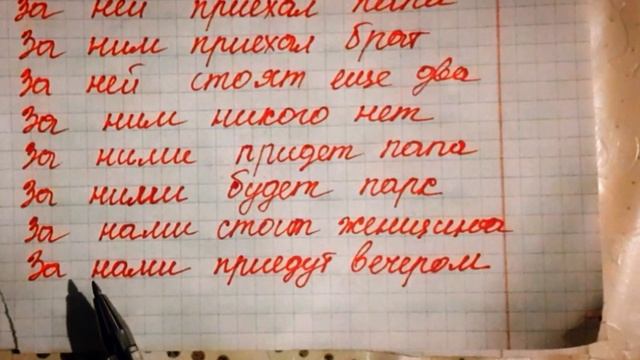 За ней приехал папа
За ним приехал брат
За ней стоят еще два
За ним никого нет
За ними придет папа
За ними будет парк
За нами стоит женщина
За нами приедут вечером